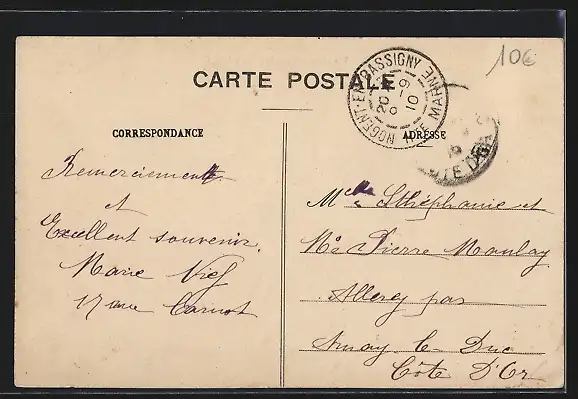 10€
CARTE POSTALE
NOGENT-EN-BASSIGNY
HTE MARNE
20
9-9
10
CORRESPONDANCE
ADRESSE
Remerciements
et
Excellent souvenir.
Marie Vief
17 rue Carnot
Melle Sthéphanie et
Mr Pierre Moulay
Allerey par
Arnay-le-Duc
Côte D'Or